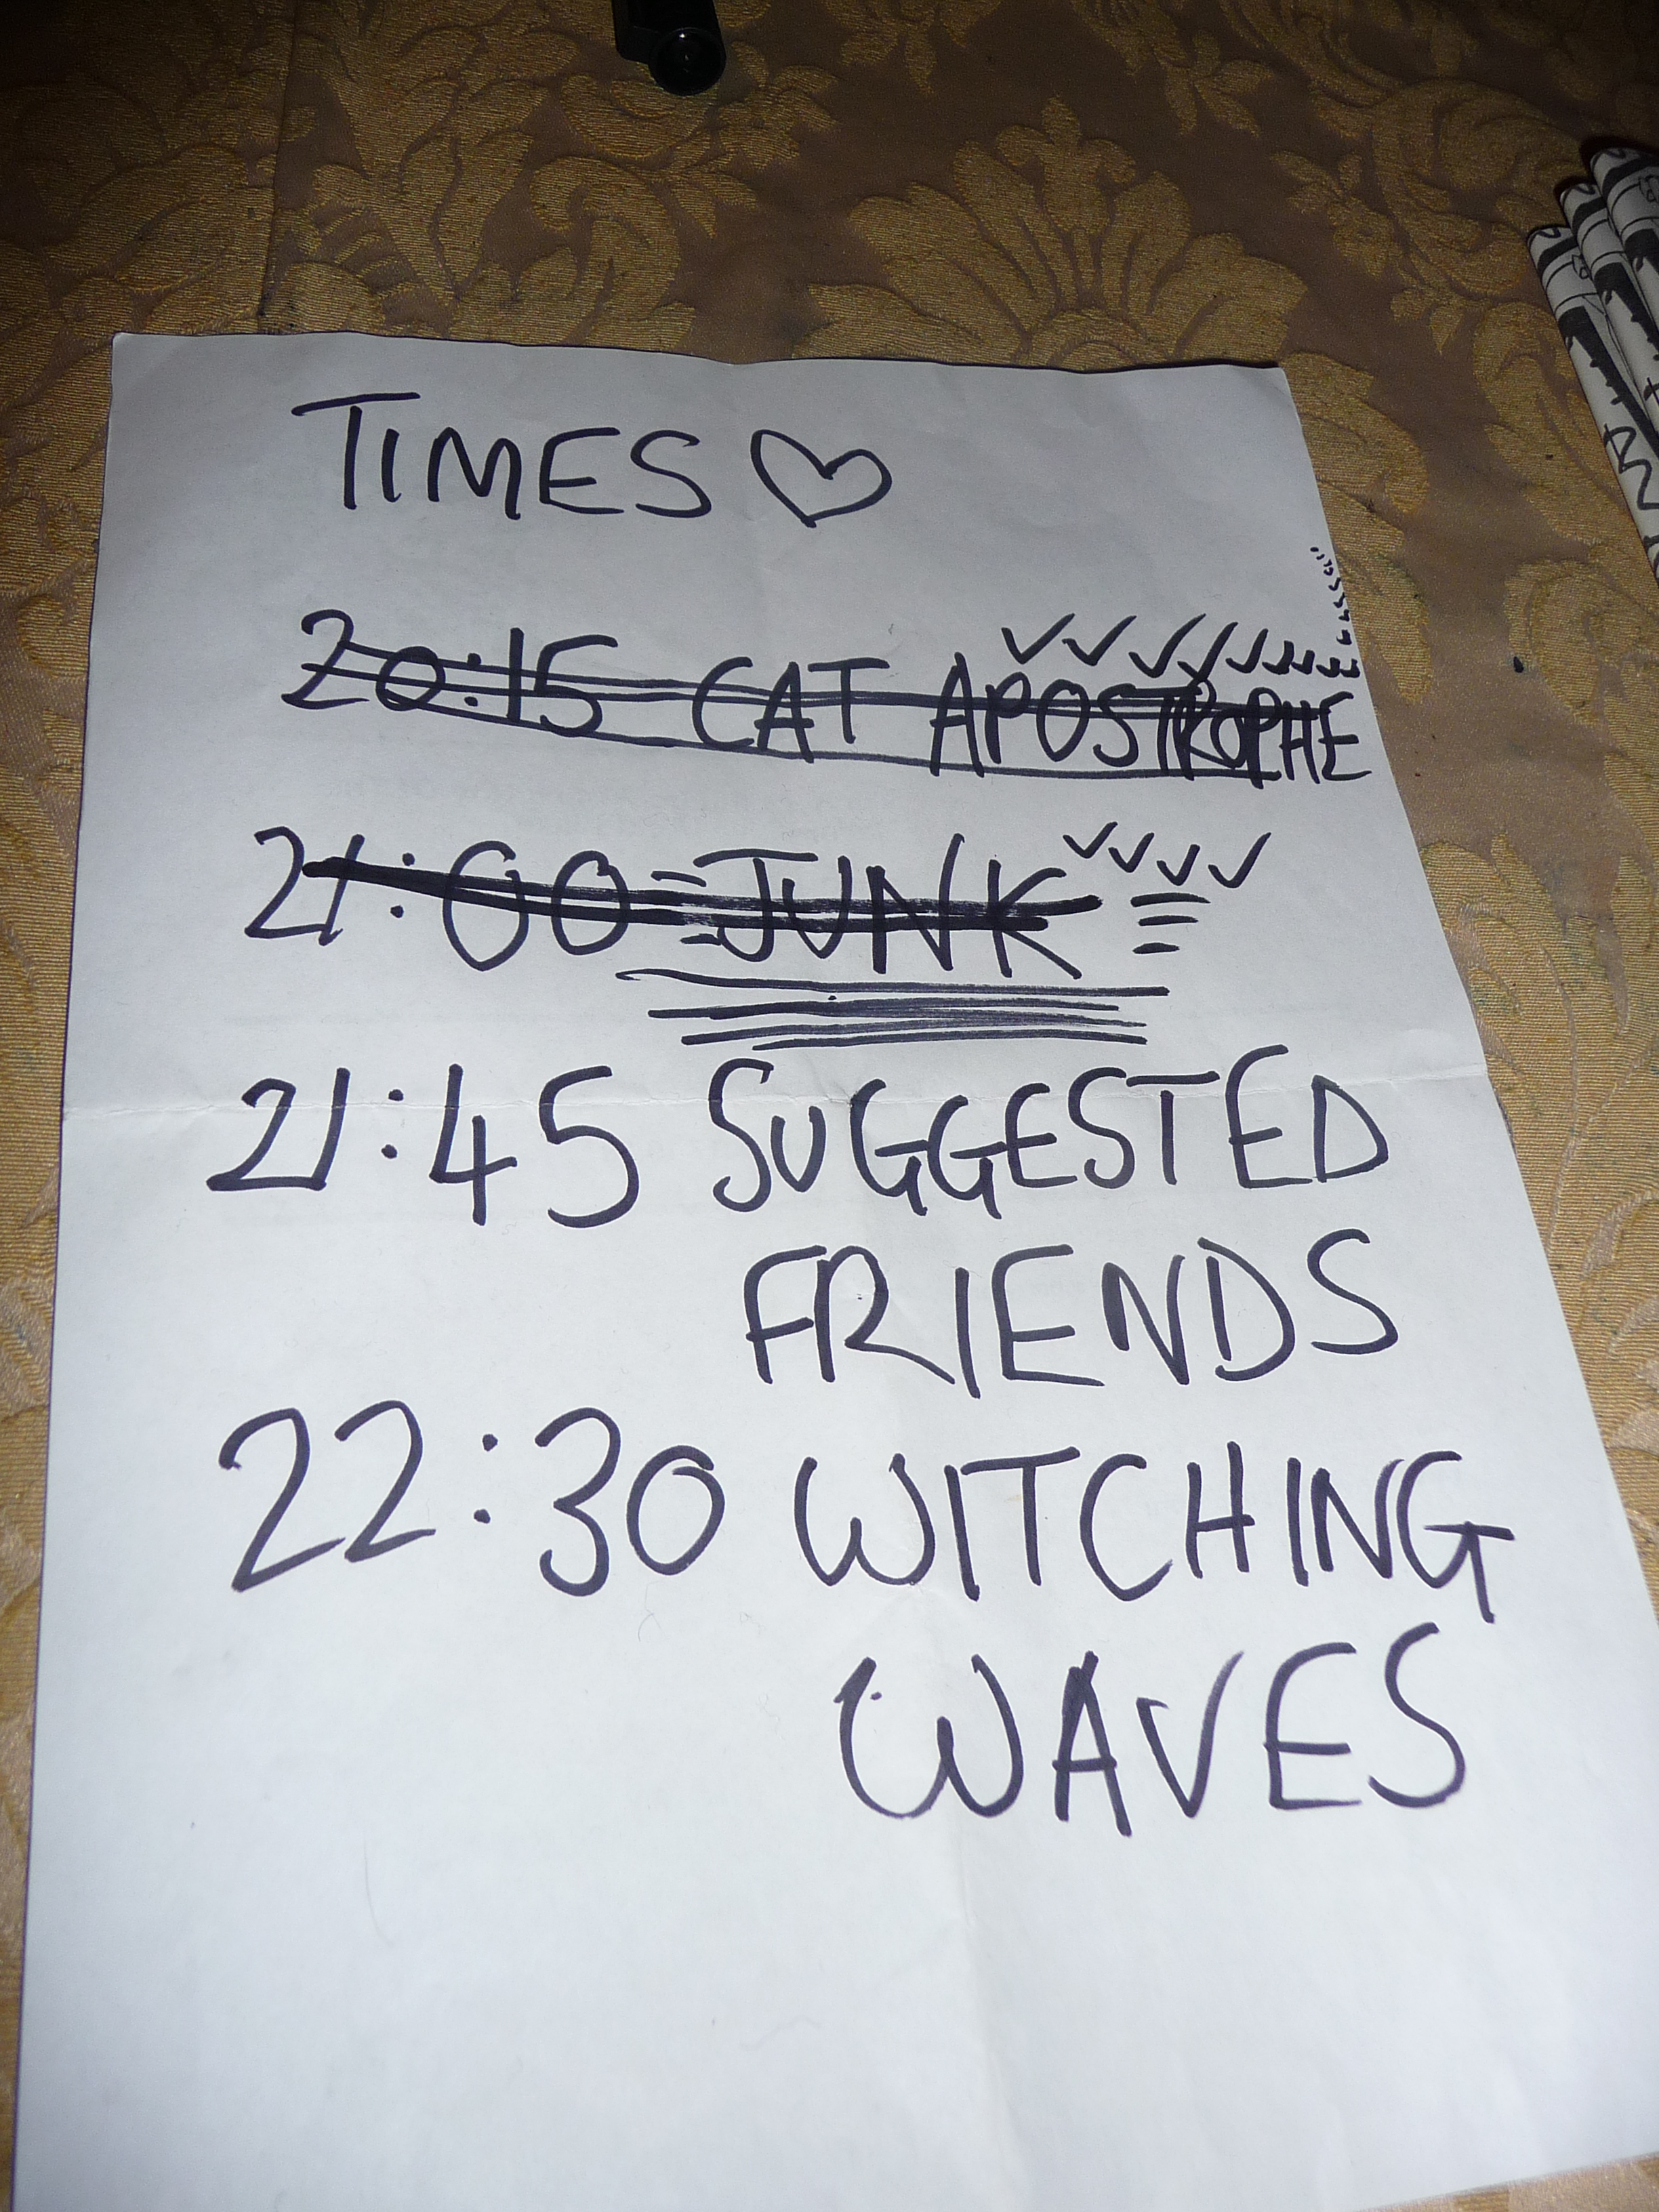 TIMES ♡
20:15 CAT APOSTROPHE
21:00 JUNK
21:45 SUGGESTED
FRIENDS
22:30 WITCHING
WAVES